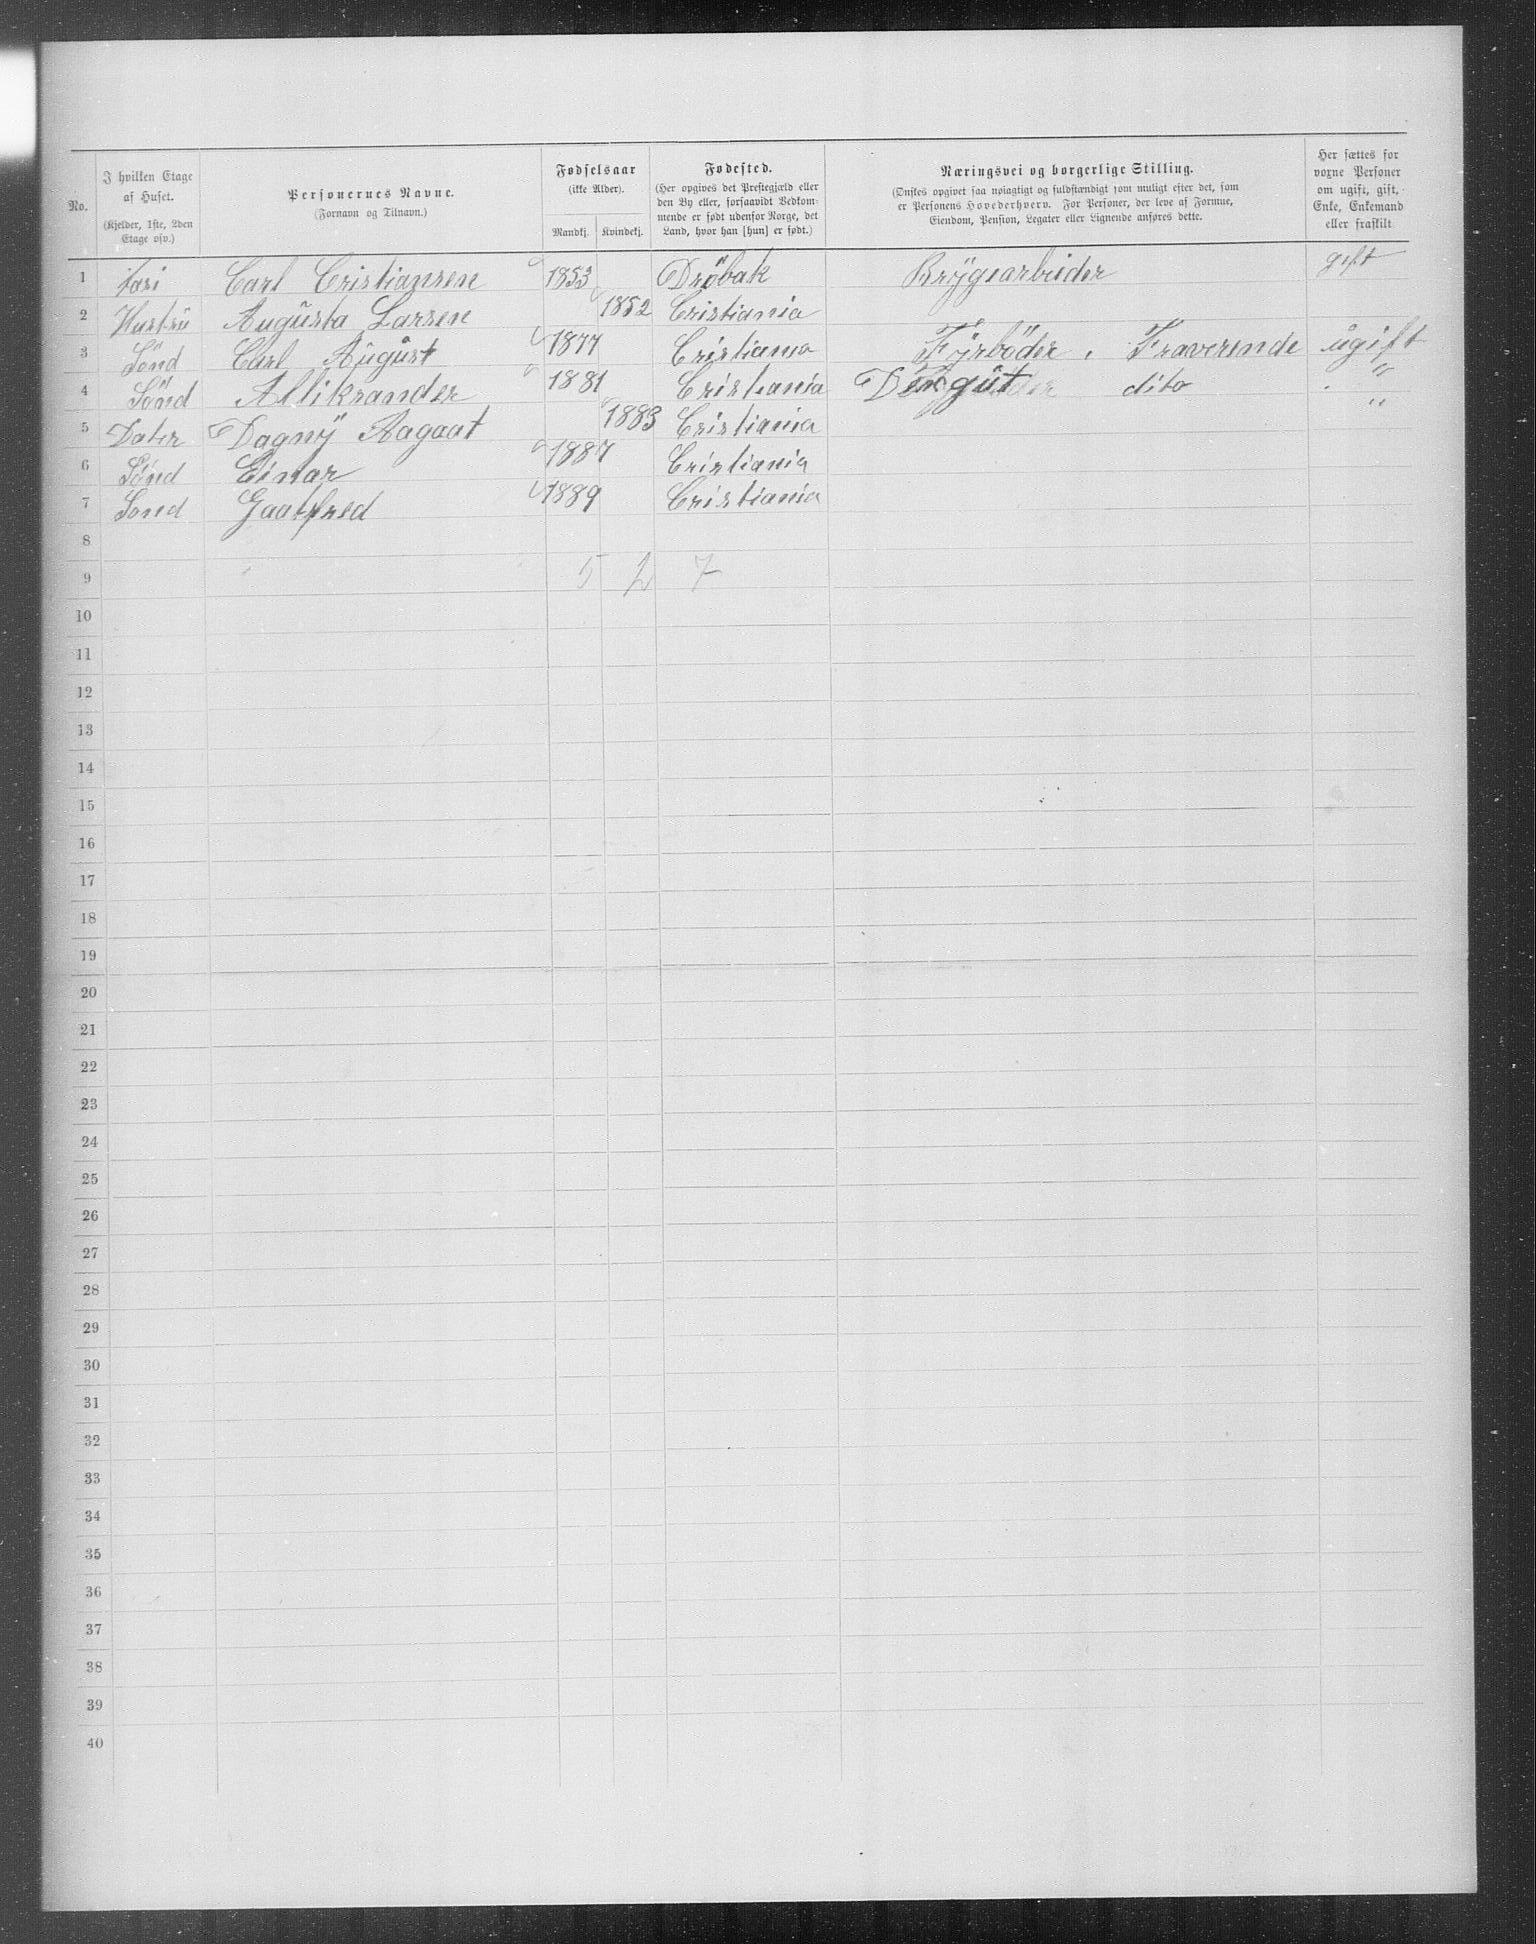 No.
I hvilken Etage af Huset.
(Kjelder, 1ste, 2den Etage osv.)
Personernes Navne.
(Fornavn og Tilnavn.)
Fødselsaar
(ikke Alder).
Mandkj. Kvindekj.
Fødested.
(Her opgives det Prestegjæld eller den By eller, forsaavidt Vedkommende er født udenfor Norge, det Land, hvor han [hun] er født.)
Næringsvei og borgerlige Stilling.
(Ønskes opgivet saa nøiagtigt og fuldstændigt som muligt efter det, som er Personens Hovederhverv. For Personer, der leve af Formue, Eiendom, Pension, Legater eller Lignende anføres dette.
Her sættes for voxne Personer om ugift, gift, Enke, Enkemand eller fraskilt
1 Fari Carl Cristiansen 1853 Dröbak Brÿgearbeider gift
2 Hustrŭ Augŭsta Larsen 1852 Cristiania
3 Sönd Carl Aŭgŭst 1877 Cristiania Fÿrböder . Fraverende ŭgift
4 Sönd Alliksander 1881 Cristiania Deksgŭt dito "
5 Dater Dagnÿ Aagaat 1883 Cristiania "
6 Sönd Einar 1887 Cristiania
7 Sond Gaatfred 1889 Cristiania
8
9 5 2 7
10
11
12
13
14
15
16
17
18
19
20
21
22
23
24
25
26
27
28
29
30
31
32
33
34
35
36
37
38
39
40